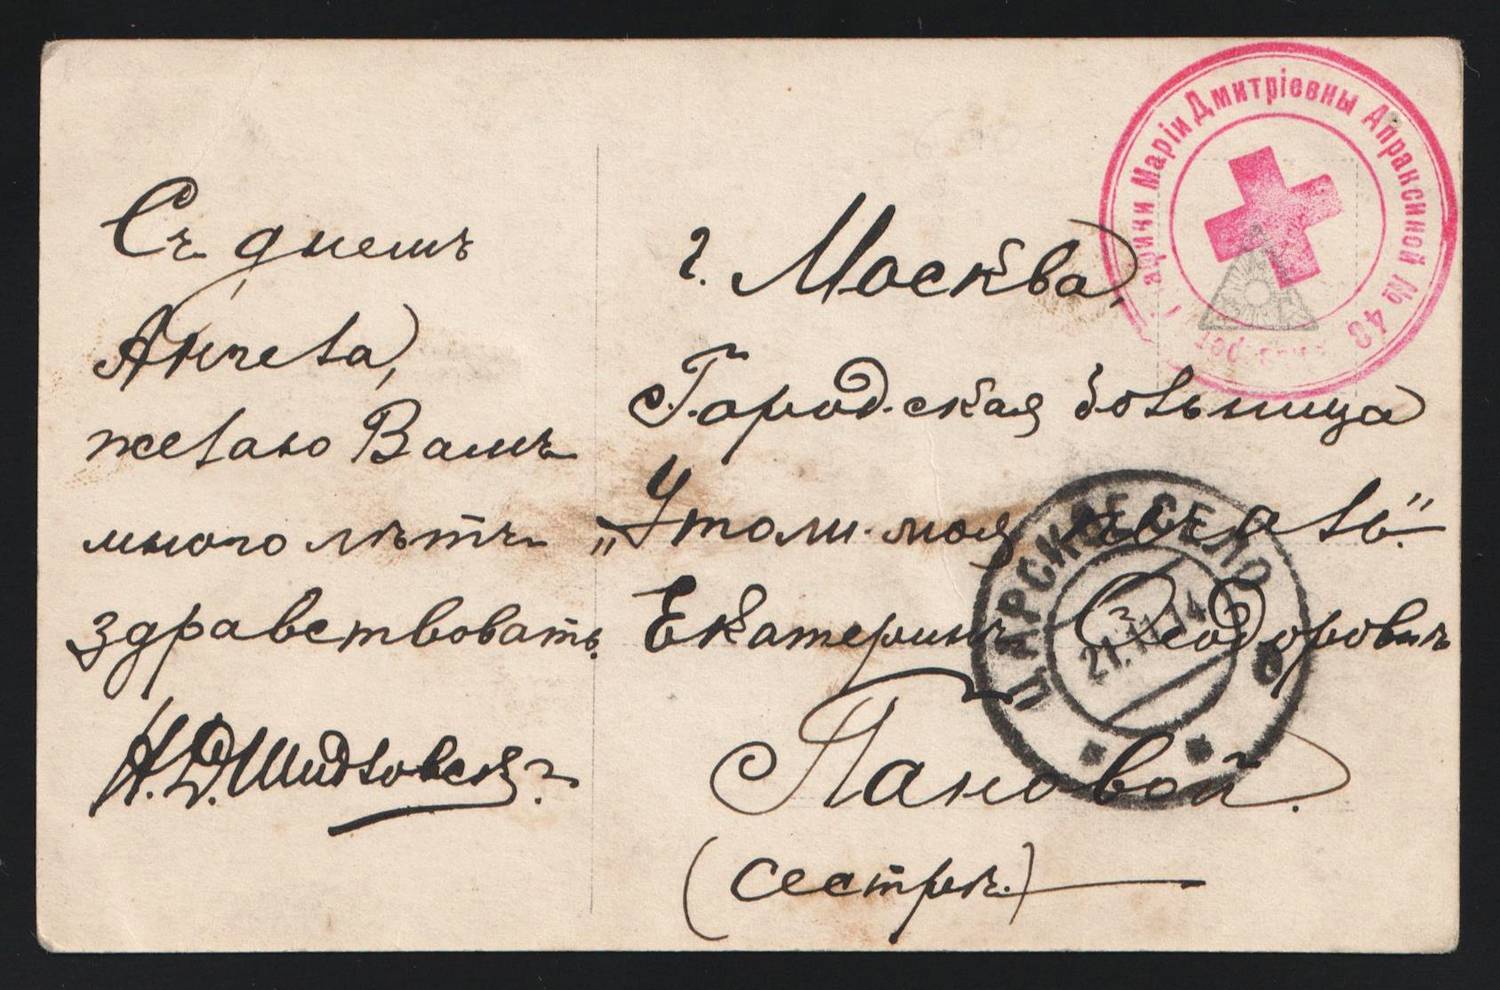 Съ днемъ
Ангела,
желаю Вамъ
много лѣтъ
здравствовать.
Н. Д. Шидловская.
г. Москва,
Городская больница
„Утоли моя печаль“
Екатеринѣ Ѳеодоровнѣ
Пановой.
(сестрѣ.)
Марiи Дмитрiевны Апраксиной № 48
ЦАРСКОЕ СЕЛО
21.11.14